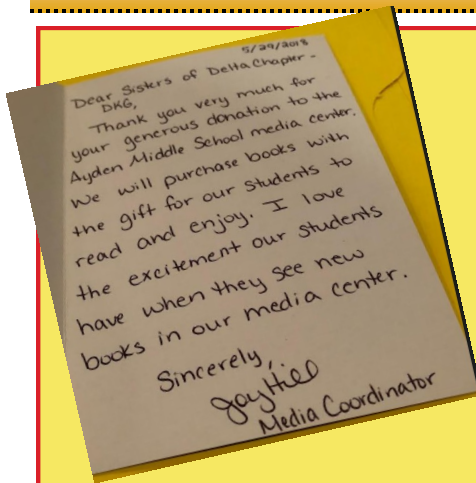 5/29/2018
Dear Sisters of Delta Chapter -
DKG,
Thank you very much for
your generous donation to the
Ayden Middle School media center.
We will purchase books with
the gift for our students to
read and enjoy. I love
the excitement our students
have when they see new
books in our media center.
Sincerely,
Joy Hill
Media Coordinator